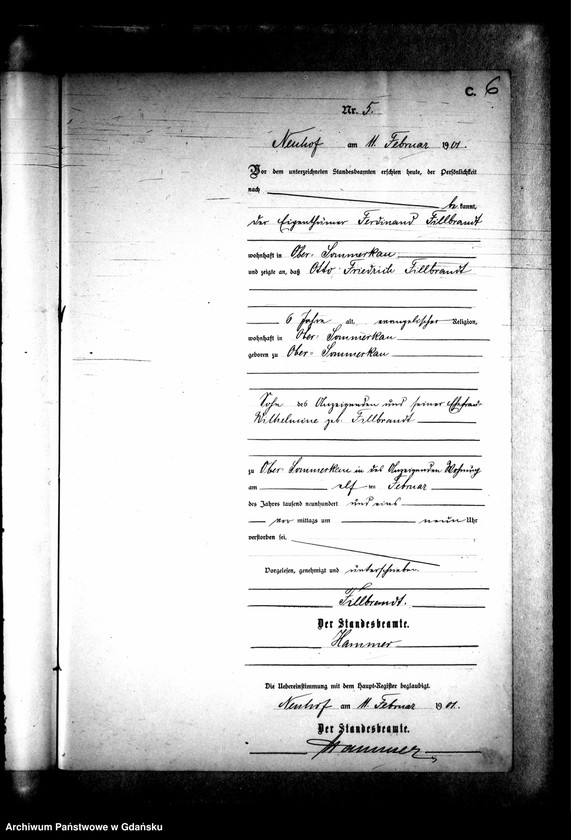 C. 6
Nr. 5.
Neuhof am 11. Februar 1901.
Vor dem unterzeichneten Standesbeamten erschien heute, der Persönlichkeit
nach
be kannt,
der Eigenthümer Ferdinand Fillbrandt
wohnhaft in Ober-Sommerkau
und zeigte an, daß Otto Friedrich Fillbrandt
6 Jahre alt, evangelischer Religion,
wohnhaft in Ober-Sommerkau
geboren zu Ober-Sommerkau
Sohn des Anzeigenden und seiner Ehefrau
Wilhelmine geb. Fillbrandt
zu Ober-Sommerkau in des Anzeigenden Wohnung
am elf ten Februar
des Jahres tausend neunhundert und eins
vor mittags um neun Uhr
verstorben sei.
Vorgelesen, genehmigt und unterschrieben
Fillbrandt.
Der Standesbeamte.
Hammer
Die Uebereinstimmung mit dem Haupt-Register beglaubigt.
Neuhof am 11. Februar 1901.
Der Standesbeamte.
Hammer
Archiwum Państwowe w Gdańsku